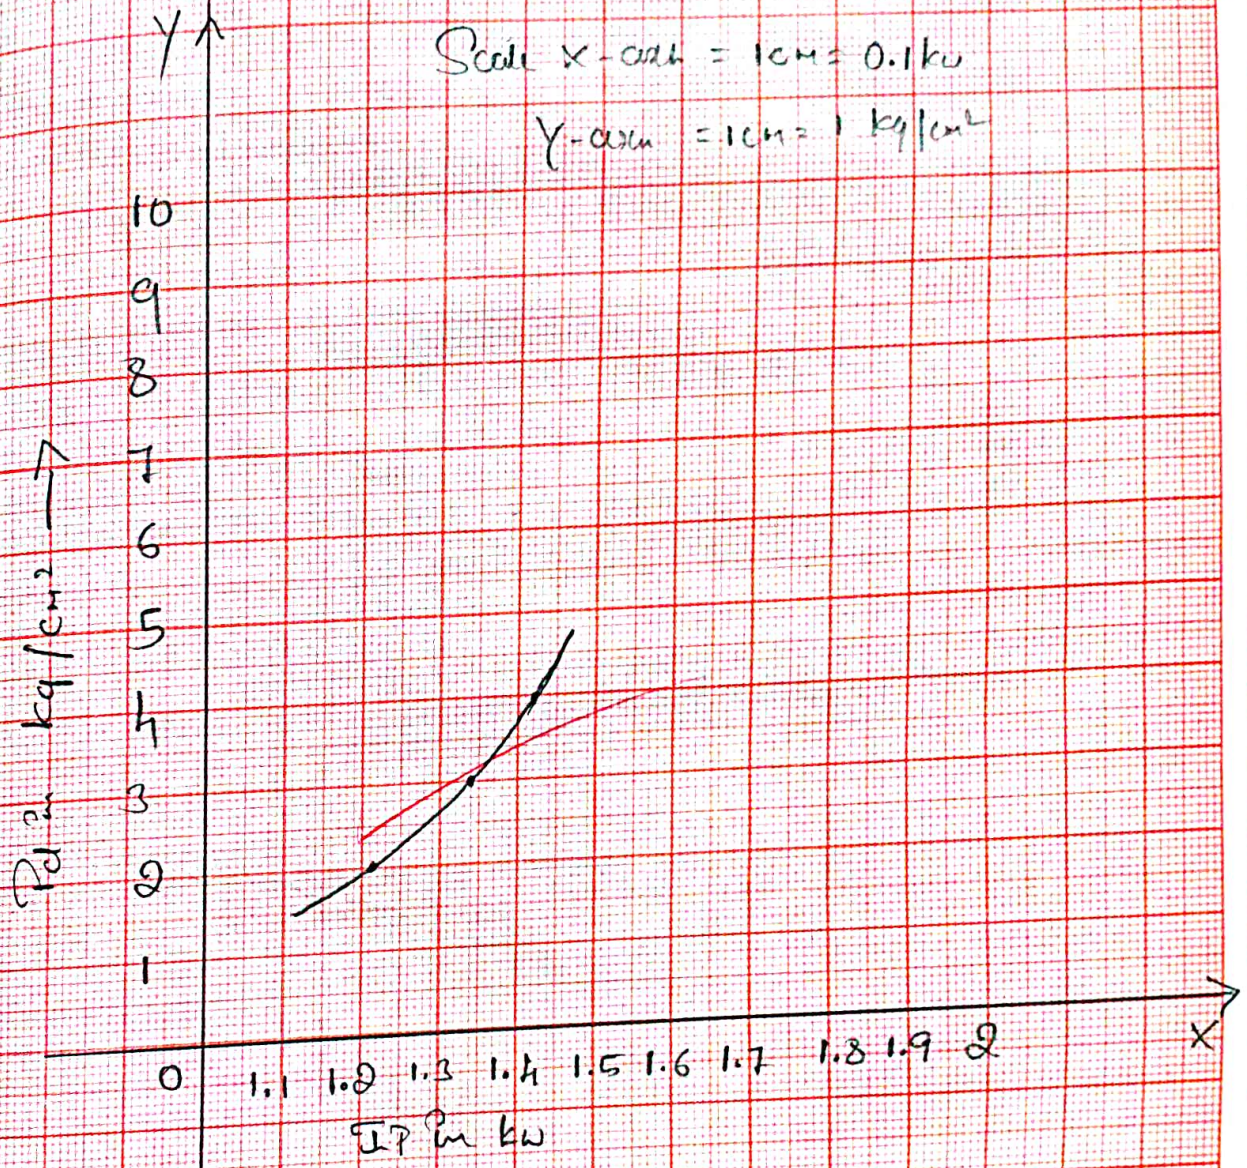 Y
Scale X-axis = 1cm = 0.1kw
Y-axis = 1cm = 1 kg/cm²
10
9
8
7
6
5
4
3
2
1
Pd in kg/cm²
0 1.1 1.2 1.3 1.4 1.5 1.6 1.7 1.8 1.9 2 X
IP in kw